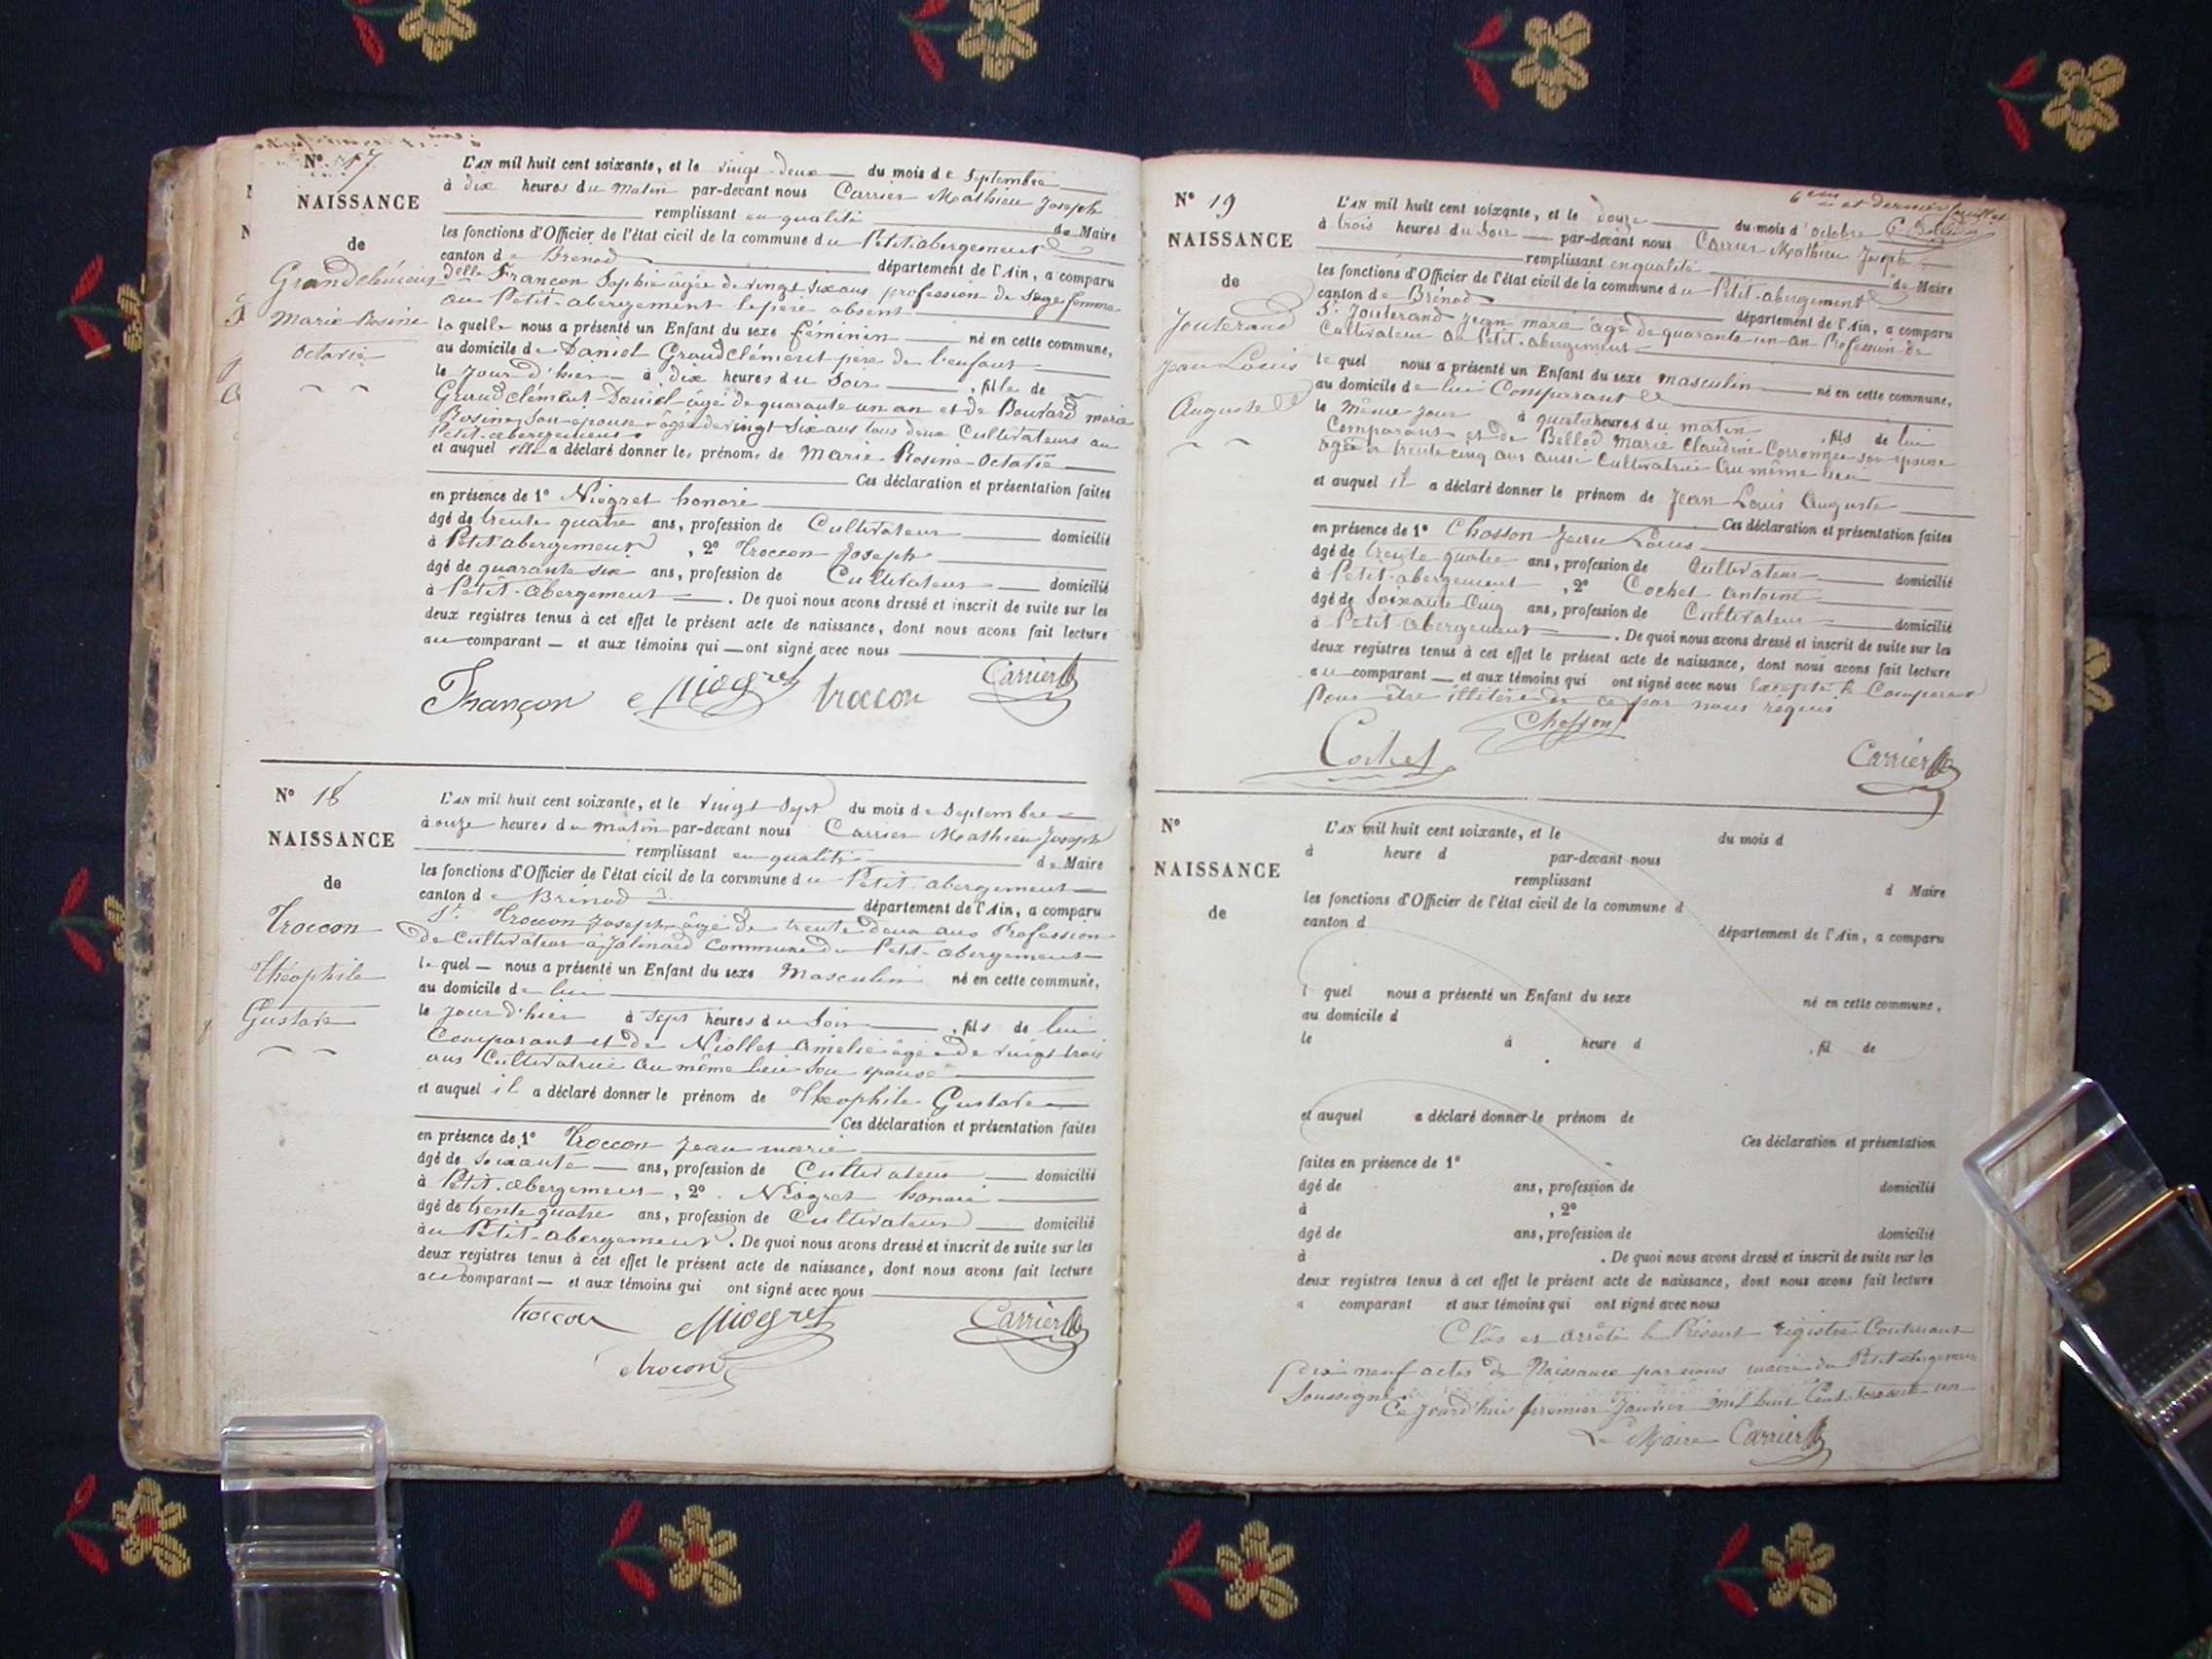 No 17
NAISSANCE
de
Grandclément
Marie Rosine
Octavie
L'AN mil huit cent soixante, et le vingt-deux du mois de Septembre
à dix heures du matin par-devant nous Carrier Mathieu Joseph
remplissant en qualité de Maire
les fonctions d'Officier de l'état civil de la commune du Petit-abergement
canton de Brénod département de l'Ain, a comparu
delle Françon Sophie âgée de vingt six ans profession de Sage femme
au Petit-abergement le père absent
laquelle nous a présenté un Enfant du sexe féminin né en cette commune,
au domicile de Daniel Grandclément père de l'enfant
le jour d'hier à dix heures du Soir , fille de
Grandclément Daniel âgé de quarante un an et de Boutard marie
Rosine Son épouse âgée de vingt Six ans tous deux Cultivateurs au
Petit-abergement
et auquel elle a déclaré donner les prénoms de Marie-Rosine-Octavie
Ces déclaration et présentation faites
en présence de 1° Niogret honoré
âgé de trente quatre ans, profession de Cultivateur domicilié
à Petit abergement , 2° Troccon Joseph
âgé de quarante six ans, profession de Cultivateur domicilié
à Petit-abergement . De quoi nous avons dressé et inscrit de suite sur les
deux registres tenus à cet effet le présent acte de naissance, dont nous avons fait lecture
au comparant et aux témoins qui ont signé avec nous
Françon Niogret troccon Carrier
No 18
NAISSANCE
de
Troccon
Théophile
Gustave
L'AN mil huit cent soixante, et le vingt Sept du mois de Septembre
à onze heures du matin par-devant nous Carrier Mathieu Joseph
remplissant en qualité de Maire
les fonctions d'Officier de l'état civil de la commune du Petit-abergement
canton de Brénod département de l'Ain, a comparu
Sr. Troccon Joseph âgé de trente deux ans Profession
de Cultivateur à Jalinard Commune du Petit-abergement
lequel nous a présenté un Enfant du sexe Masculin né en cette commune,
au domicile de lui
le jour d'hier à Sept heures du Soir , fils de lui
Comparant et de Niollet Amélie âgée de vingt trois
ans Cultivatrice au même lieu Son épouse
et auquel il a déclaré donner le prénom de Théophile Gustave
Ces déclaration et présentation faites
en présence de 1° Troccon Jean marie
âgé de soixante ans, profession de Cultivateur domicilié
à Petit-abergement , 2° Niogret honoré
âgé de trente quatre ans, profession de Cultivateur domicilié
à au Petit-abergement . De quoi nous avons dressé et inscrit de suite sur les
deux registres tenus à cet effet le présent acte de naissance, dont nous avons fait lecture
au comparant et aux témoins qui ont signé avec nous
troccon Niogret Carrier
troccon
6eme et dernier feuillet
No 19
NAISSANCE
de
Jouterand
Jean Louis
Auguste
L'AN mil huit cent soixante, et le douze du mois d'octobre
à trois heures du Soir par-devant nous Carrier Mathieu Joseph
remplissant en qualité de Maire
les fonctions d'Officier de l'état civil de la commune du Petit-abergement
canton de Brénod département de l'Ain, a comparu
Sr. Jouterand Jean marie âgé de quarante un an Profession de
Cultivateur au Petit-abergement
lequel nous a présenté un Enfant du sexe masculin né en cette commune,
au domicile de lui Comparant
le même jour à quatre heures du matin , fils de lui
Comparant et de Bellod Marie Claudine son épouse
âgée de trente cinq ans aussi Cultivatrice au même lieu
et auquel il a déclaré donner le prénom de Jean Louis Auguste
Ces déclaration et présentation faites
en présence de 1° Chosson Jean Louis
âgé de trente quatre ans, profession de Cultivateur domicilié
à Petit-abergement , 2° Cochet antoine
âgé de Soixante Cinq ans, profession de Cultivateur domicilié
à Petit-abergement . De quoi nous avons dressé et inscrit de suite sur les
deux registres tenus à cet effet le présent acte de naissance, dont nous avons fait lecture
au comparant et aux témoins qui ont signé avec nous Excepté le Comparant
Pour être illitéré de ce par nous requis
Cochet Chosson Carrier
No
NAISSANCE
de
L'AN mil huit cent soixante, et le du mois d
à heure d par-devant nous
remplissant d Maire
les fonctions d'Officier de l'état civil de la commune d
canton d département de l'Ain, a comparu
l quel nous a présenté un Enfant du sexe né en cette commune,
au domicile d
le à heure d , fil de
et auquel a déclaré donner le prénom de
Ces déclaration et présentation
faites en présence de 1°
âgé de ans, profession de domicilié
à , 2°
âgé de ans, profession de domicilié
à . De quoi nous avons dressé et inscrit de suite sur les
deux registres tenus à cet effet le présent acte de naissance, dont nous avons fait lecture
a comparant et aux témoins qui ont signé avec nous
Clos et arrêté le Présent registre Contenant
dix neuf actes de Naissance par nous maire du Petit abergement
Soussigné
Ce jourd'hui premier Janvier mil huit Cent Soixante un
Le Maire Carrier